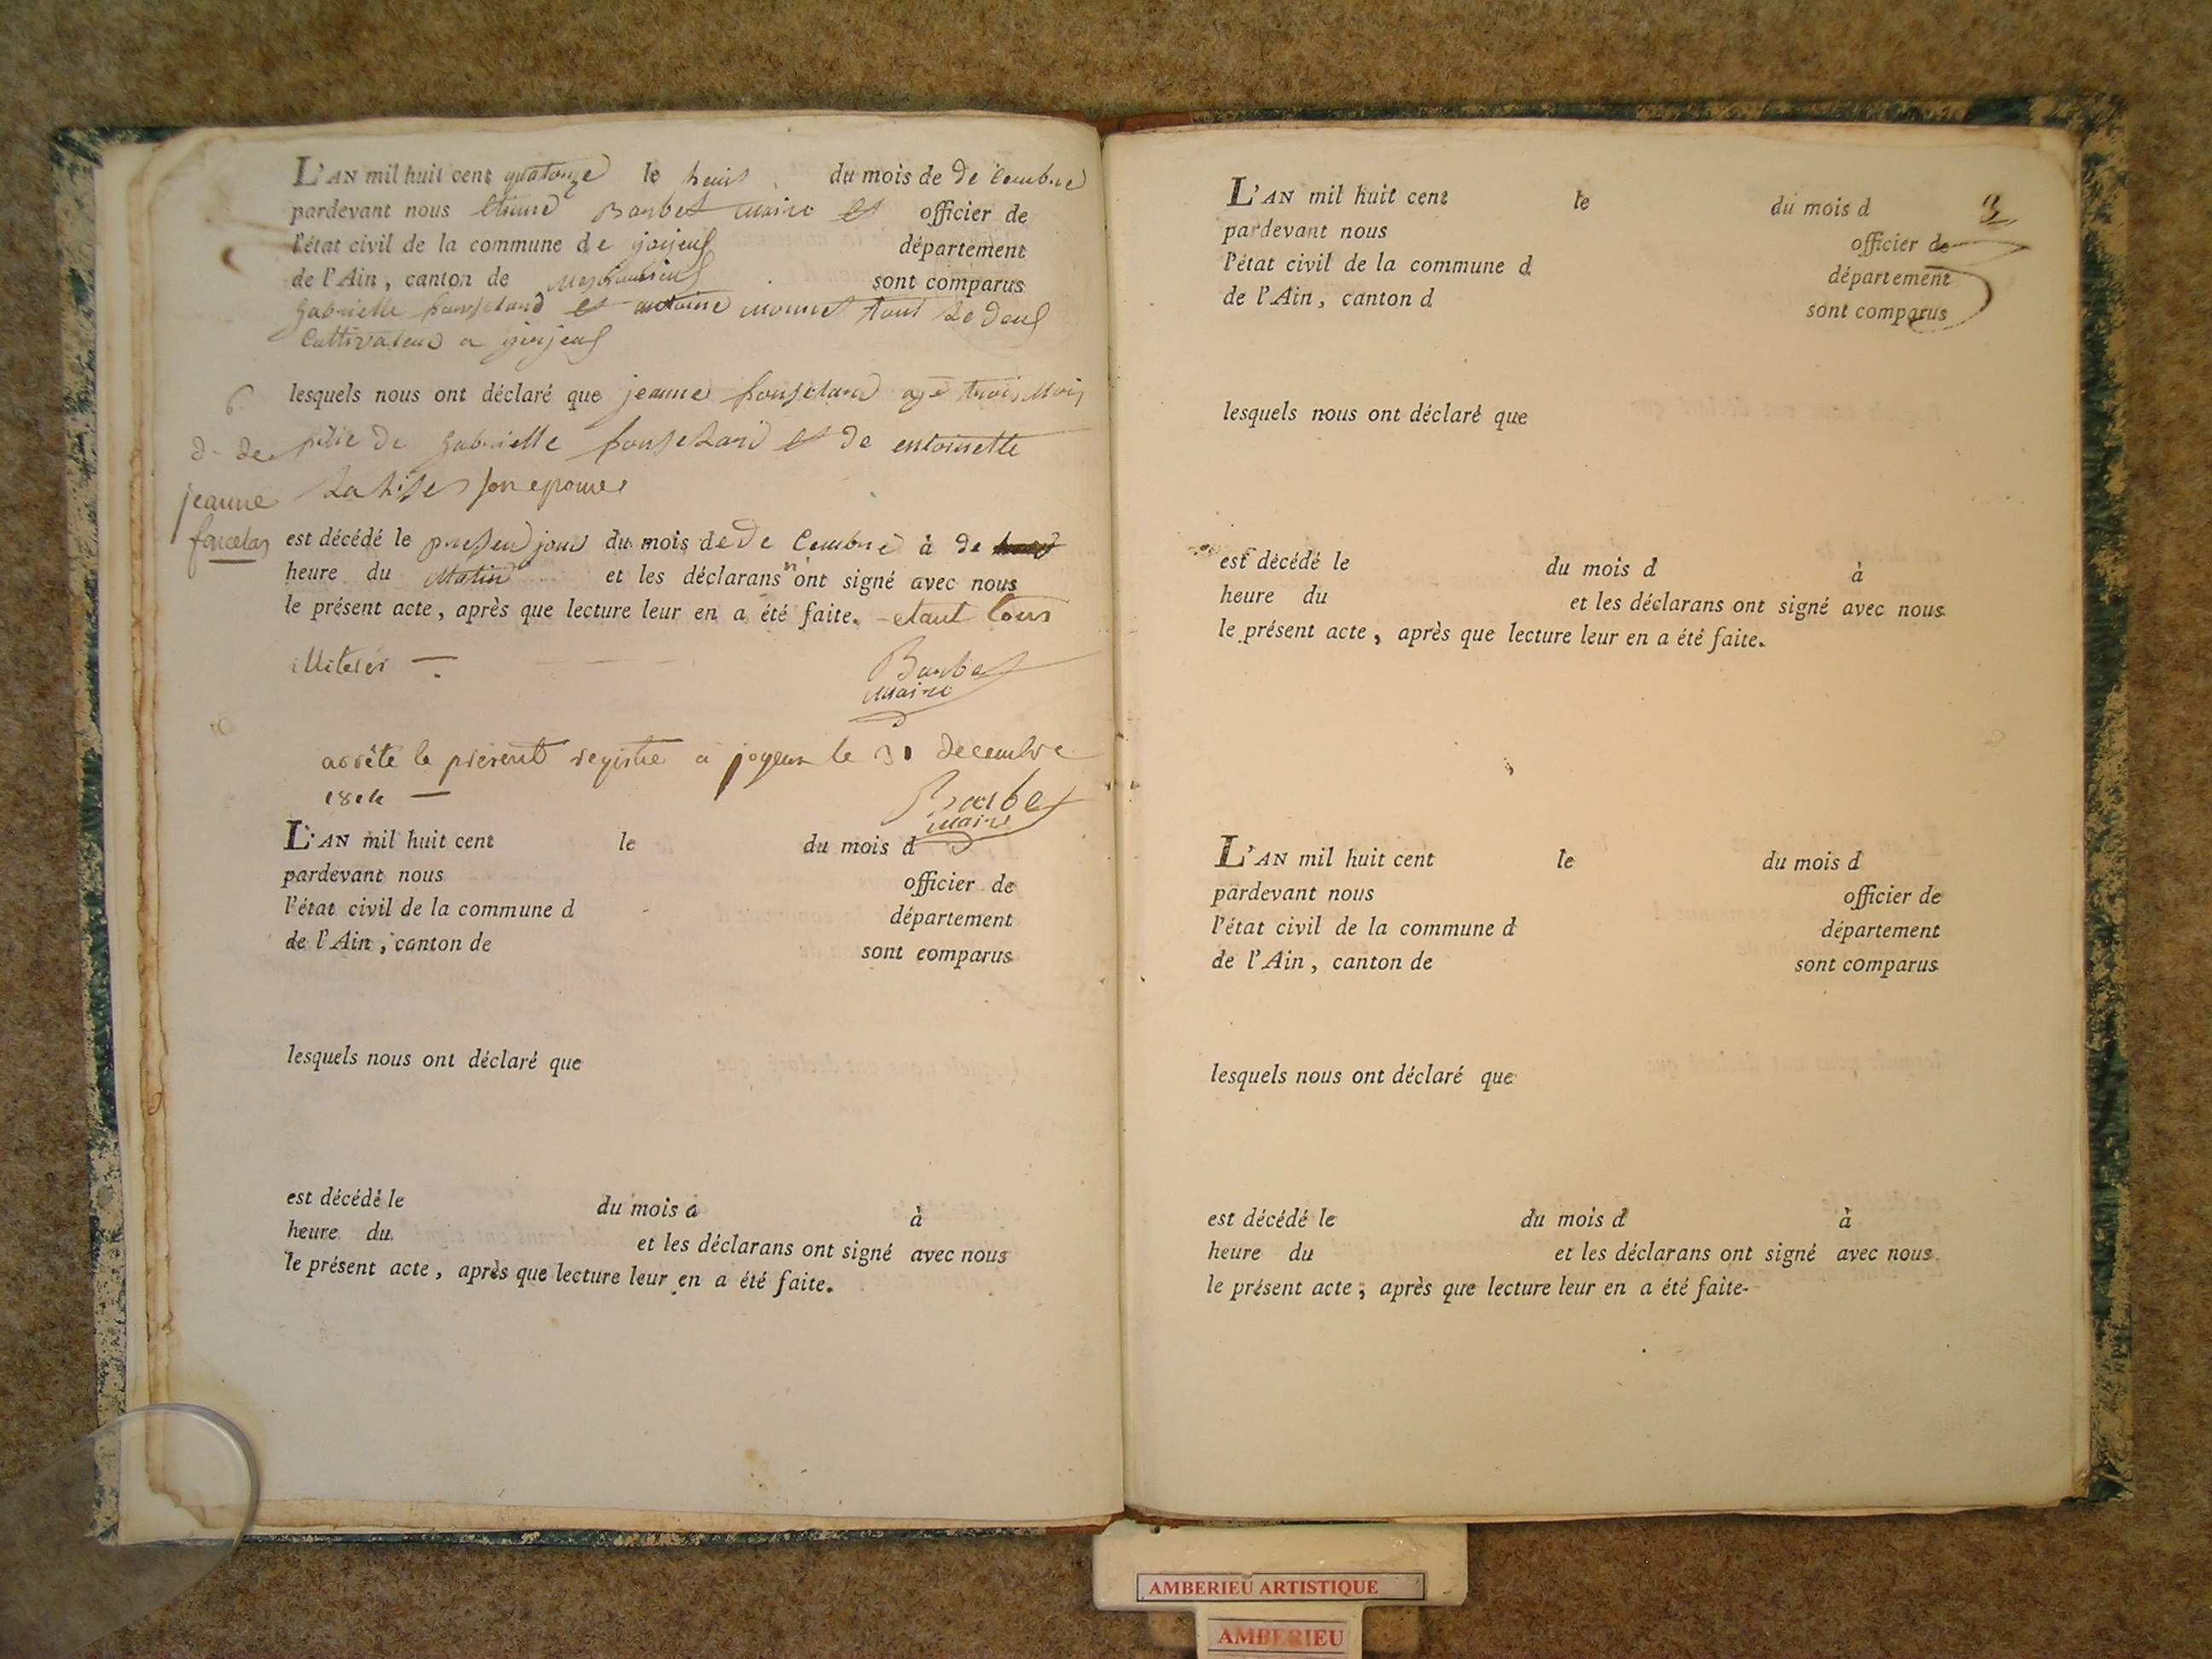 L'AN mil huit cent quatorze le huit du mois de de cembre
pardevant nous etiene Barbet maire et officier de
l'état civil de la commune de joijeuf département
de l'Ain, canton de sont comparus
Gabrielle et antoine monnet tout le deuf
Cultivateur a joijeuf
6
lesquels nous ont déclaré que jeanne agé trois Mois
d. de
filie de Gabrielle et de entoinette
jeanne
son epouse
forcelan
est décédé le jour du mois de De Cembre à de
heure du Matin et les déclarans n'ont signé avec nous
le présent acte, après que lecture leur en a été faite. etant tous
illiterés —
Barbet
maire
arrêté le présent registre a joyeux le 31 decembre
1814 —
Barbet
maire
L'AN mil huit cent le du mois d
pardevant nous officier de
l'état civil de la commune d département
de l'Ain, canton de sont comparus
lesquels nous ont déclaré que
est décédé le du mois d à
heure du et les déclarans ont signé avec nous
le présent acte, après que lecture leur en a été faite.
L'AN mil huit cent le du mois d
3
pardevant nous officier de
l'état civil de la commune d département
de l'Ain, canton d sont comparus
lesquels nous ont déclaré que
est décédé le du mois d à
heure du et les déclarans ont signé avec nous
le présent acte, après que lecture leur en a été faite.
L'AN mil huit cent le du mois d
pardevant nous officier de
l'état civil de la commune d département
de l'Ain, canton de sont comparus
lesquels nous ont déclaré que
est décédé le du mois d à
heure du et les déclarans ont signé avec nous
le présent acte; après que lecture leur en a été faite-
AMBERIEU ARTISTIQUE
AMBERIEU